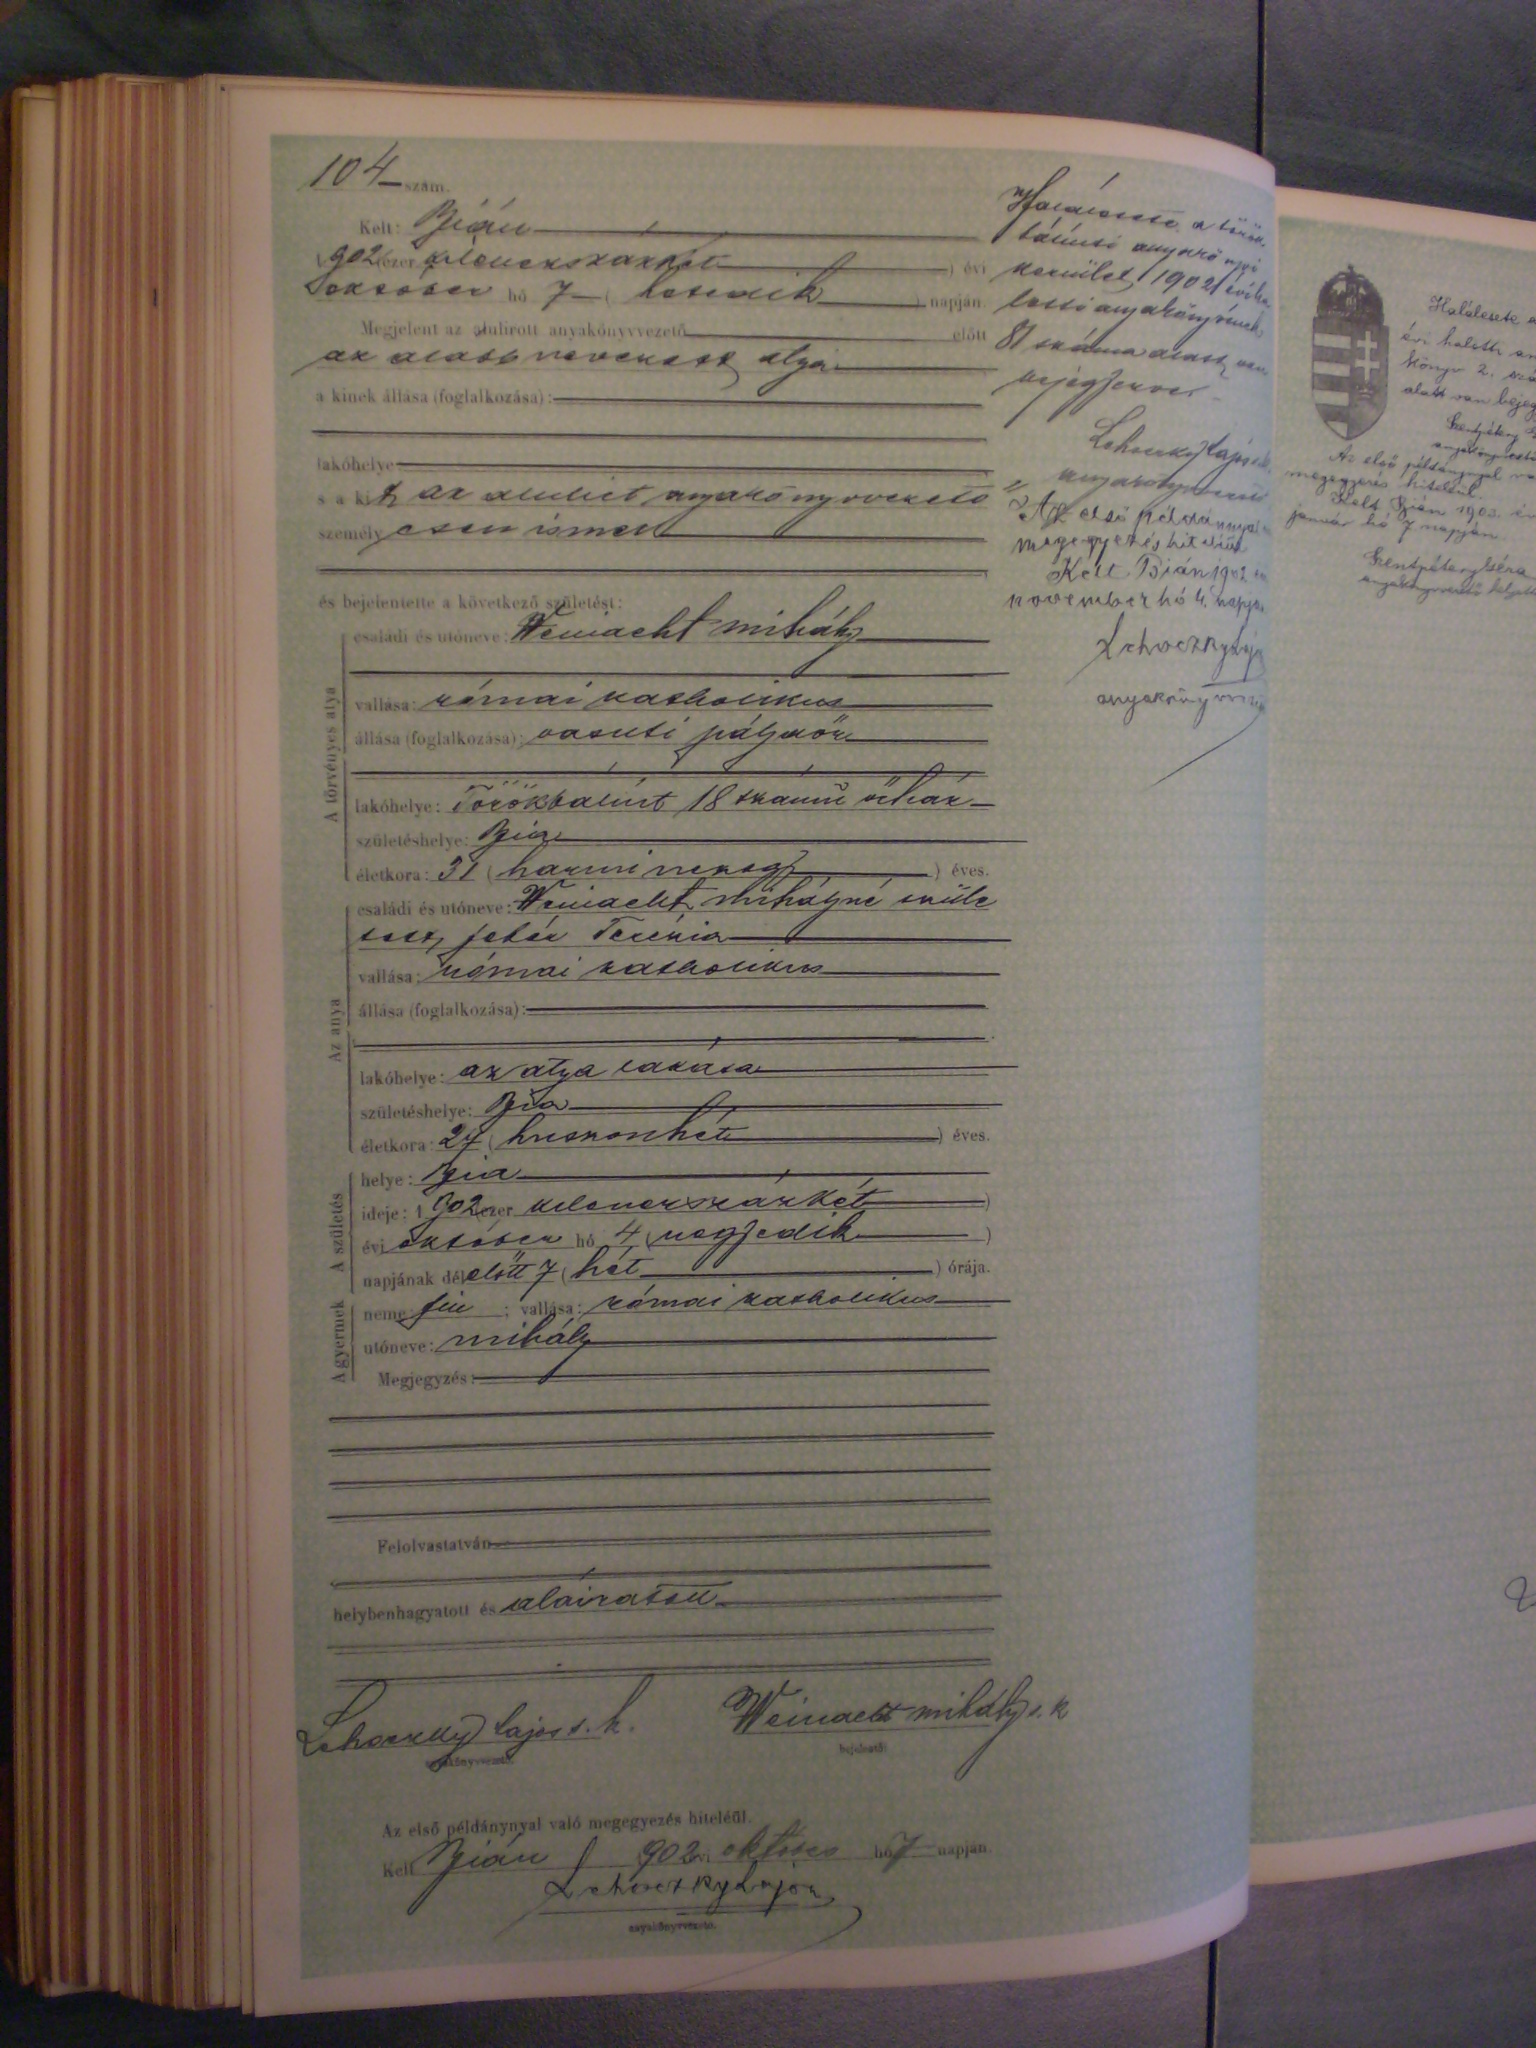 104 szám.
Kelt: Bián
1902 ezer kilenczszázkét ) évi
október hó 7 ( hetedik ) napján.
Megjelent az alulirott anyakönyvvezető előtt
az alább nevezett atya
a kinek állása (foglalkozása):
lakóhelye
s a kit az alulirt anyakönyvvezető
személyesen ismer
és bejelentette a következő születést:
A törvényes atya
családi és utóneve: Weinacht Mihály
vallása: római katholikus
állása (foglalkozása): vasuti pályaőr
lakóhelye: Törökbálint 18 számú őrház
születéshelye: Bia
életkora: 31 ( harminczegy ) éves.
Az anya
családi és utóneve: Weinacht Mihályné szüle
tett Fehér Terézia
vallása: római katholikus
állása (foglalkozása):
lakóhelye: az atya lakása
születéshelye: Bia
életkora: 27 ( huszonhét ) éves.
A születés
helye: Bia
ideje: 1902 ezer kilenczszázkét )
évi október hó 4 ( negyedik )
napjának délelőtt 7 ( hét ) órája.
A gyermek
neme: fiu ; vallása: római katholikus
utóneve: Mihály
Megjegyzés:
Felolvastatván
helybenhagyatott és aláiratott
Lehoczky Lajos s. k.
anyakönyvvezető.
Weinacht Mihály s. k
bejelentő.
Az első példánynyal való megegyezés hiteléül.
Kelt Bián 1902 évi október hó 7 napján.
Lehoczky Lajos
anyakönyvvezető.
Halálesete a török
bálinti anyakönyvi
kerület 1902 évi ha
lotti anyakönyvének
81 száma alatt van
bejegyezve.
Lehoczky Lajos s.k.
anyakönyvvezető
Az első példánnyal
megegyezés hiteléül
Kelt Bián 1902 évi
november hó 4. napján
Lehoczky Lajos
anyakönyvvezető
Halálesete
évi halotti
könyv 2. szá
alatt van bejegy
Szentpétery
anyakönyvvezető
Az első példánynyal
megegyezés hiteléül.
Kelt Bián 1903. év
január hó 7 napján.
Szentpétery Géza
anyakönyvvezető helyett